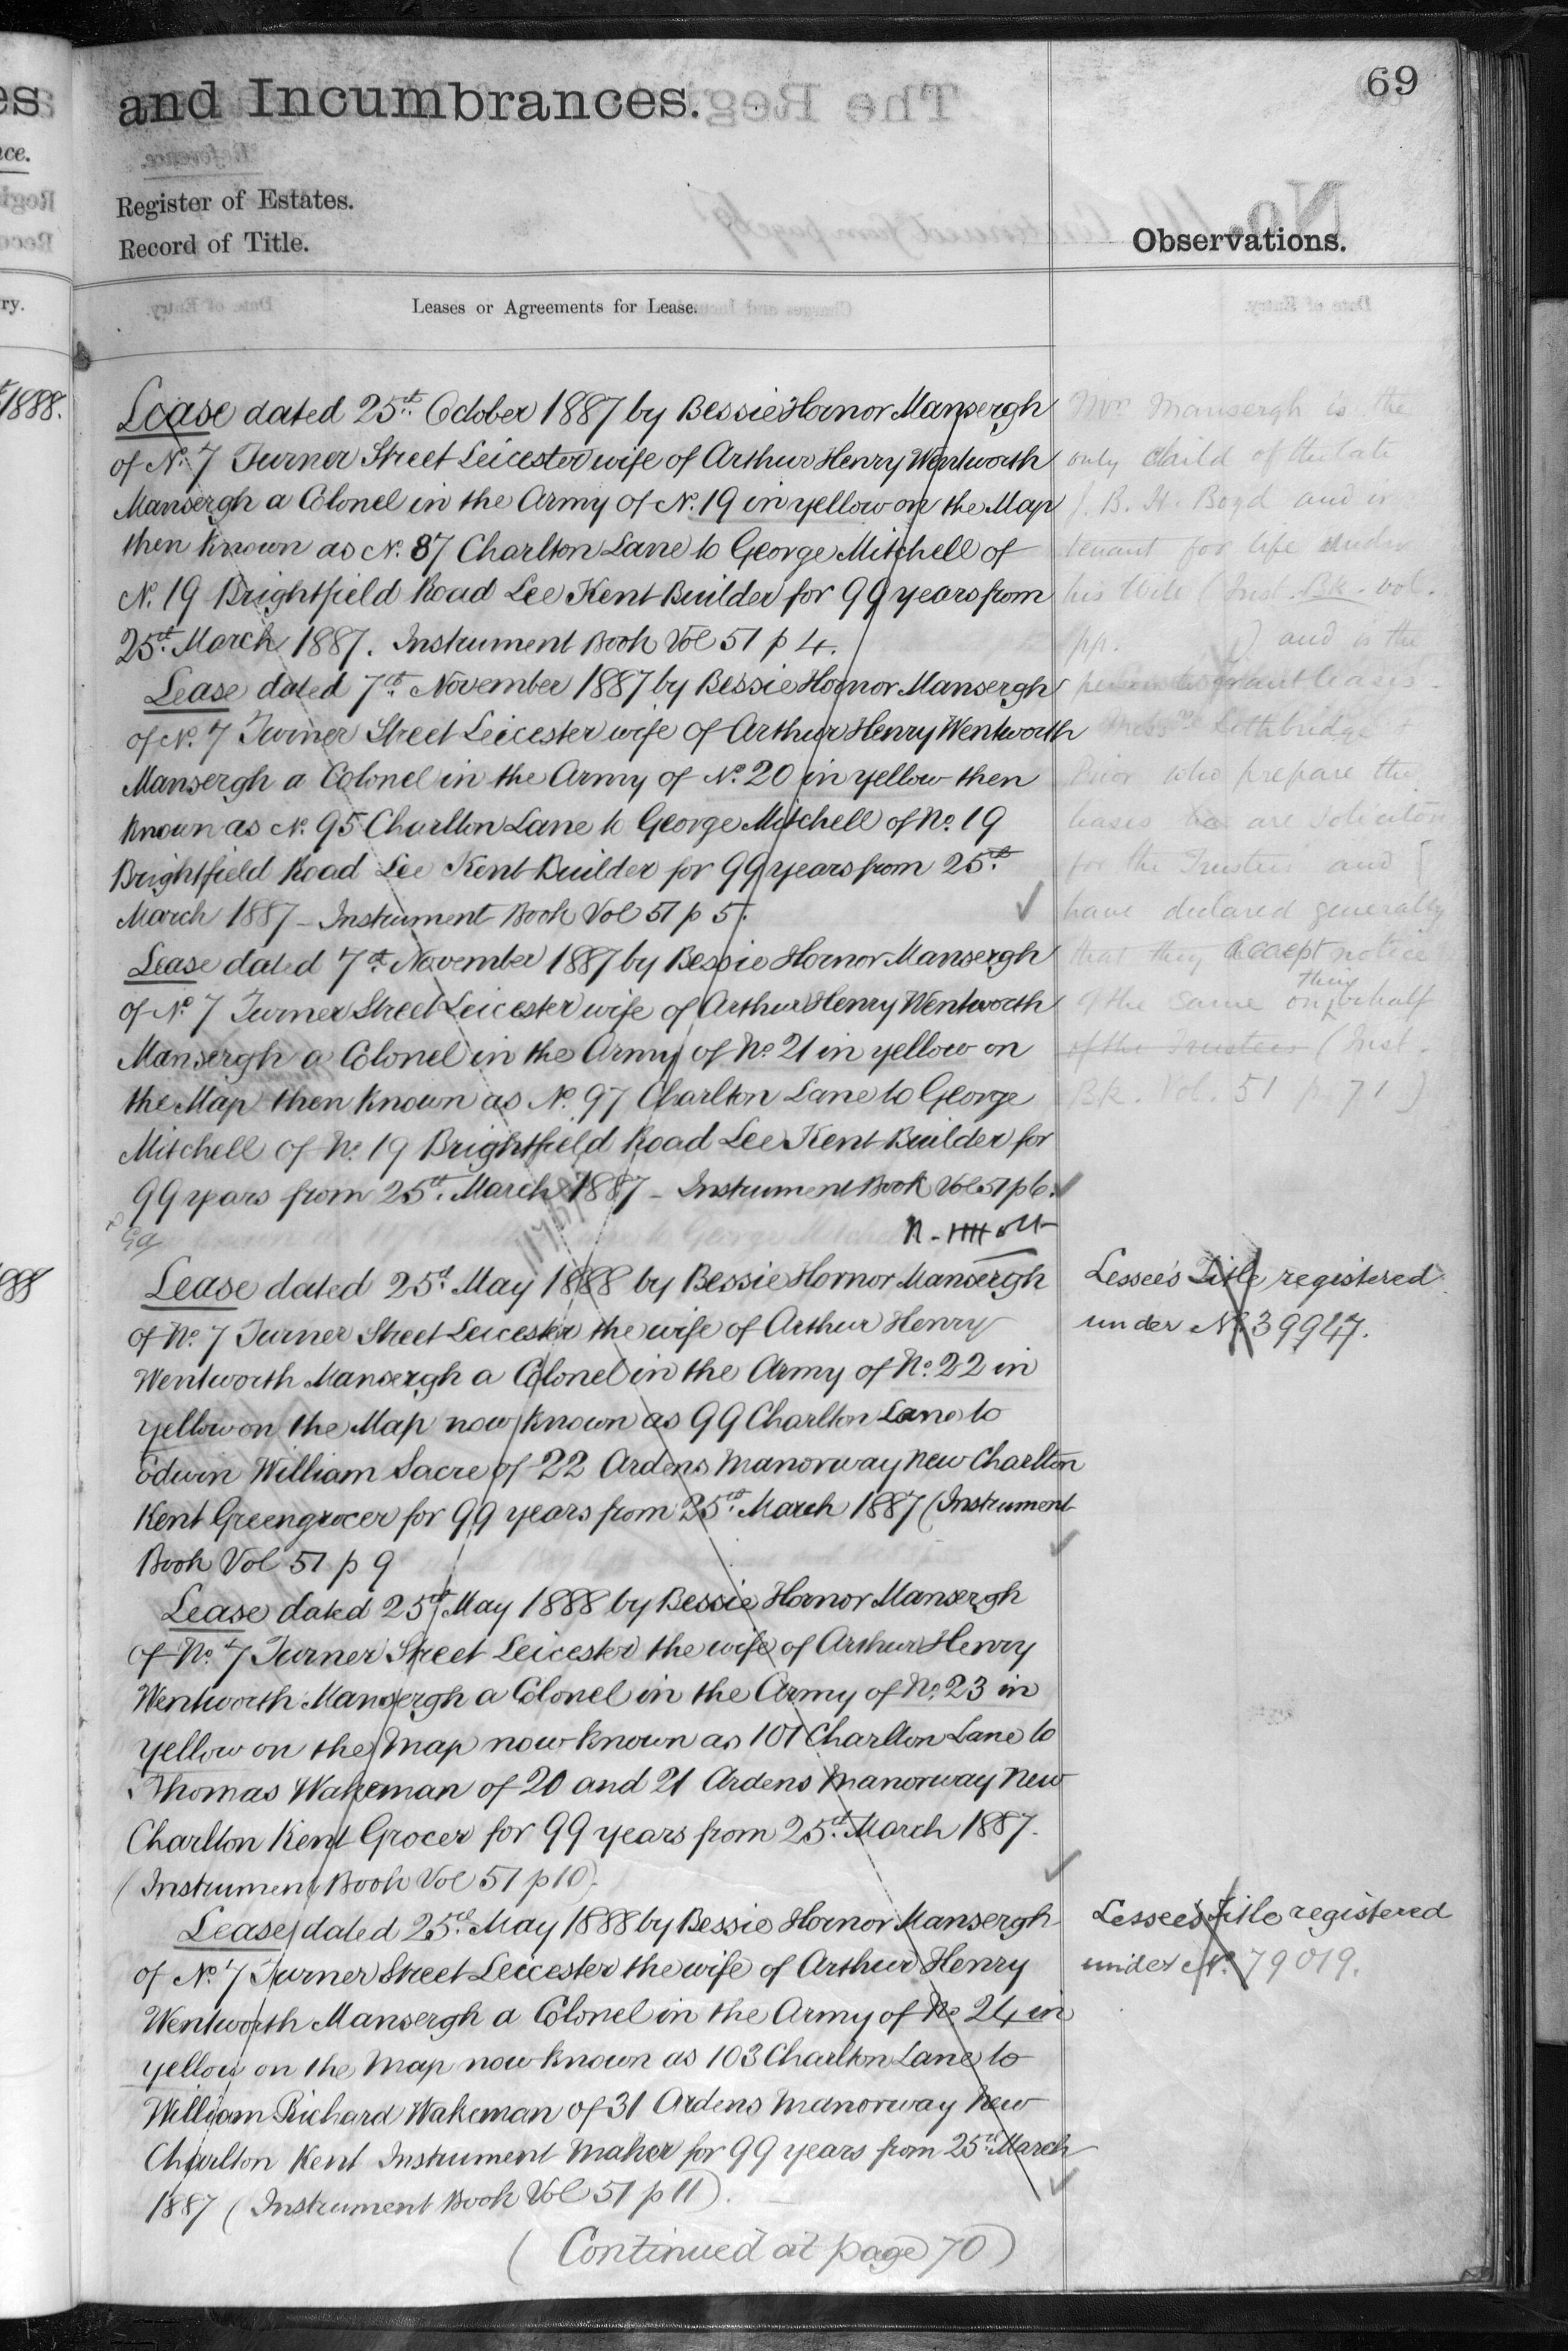 69
and Incumbrances.
Register of Estates.
Record of Title.
Observations.
Leases or Agreements for Lease.
Lease dated 25th October 1887 by Bessie Hornor Mansergh
of No. 7 Turner Street Leicester wife of Arthur Henry Wentworth
Mansergh a Colonel in the Army of No. 19 in yellow on the Map
then known as No. 87 Charlton Lane to George Mitchell of
No. 19 Brightfield Road Lee Kent Builder for 99 years from
25th March 1887. Instrument Book Vol 51 p 4.
Lease dated 7th November 1887 by Bessie Hornor Mansergh
of No. 7 Turner Street Leicester wife of Arthur Henry Wentworth
Mansergh a Colonel in the Army of No. 20 in yellow then
known as No. 95 Charlton Lane to George Mitchell of No. 19
Brightfield Road Lee Kent Builder for 99 years from 25th
March 1887 - Instrument Book Vol 51 p 5.
Lease dated 7th November 1887 by Bessie Hornor Mansergh
of No. 7 Turner Street Leicester wife of Arthur Henry Wentworth
Mansergh a Colonel in the Army of No. 21 in yellow on
the Map then known as No. 97 Charlton Lane to George
Mitchell of No. 19 Brightfield Road Lee Kent Builder for
99 years from 25th March 1887 - Instrument Book Vol 51 p 6.
Lease dated 25th May 1888 by Bessie Hornor Mansergh
of No. 7 Turner Street Leicester the wife of Arthur Henry
Wentworth Mansergh a Colonel in the Army of No. 22 in
yellow on the Map now known as 99 Charlton Lane to
Edwin William Sacre of 22 Ardens Manorway New Charlton
Kent Greengrocer for 99 years from 25th March 1887 (Instrument
Book Vol 51 p 9
Lease dated 25th May 1888 by Bessie Hornor Mansergh
of No. 7 Turner Street Leicester the wife of Arthur Henry
Wentworth Mansergh a Colonel in the Army of No. 23 in
yellow on the Map now known as 101 Charlton Lane to
Thomas Wakeman of 20 and 21 Ardens Manorway New
Charlton Kent Grocer for 99 years from 25th March 1887.
(Instrument Book Vol 51 p 10).
Lease dated 25th May 1888 by Bessie Hornor Mansergh
of No. 7 Turner Street Leicester the wife of Arthur Henry
Wentworth Mansergh a Colonel in the Army of No. 24 in
yellow on the Map now known as 103 Charlton Lane to
William Richard Wakeman of 31 Ardens Manorway New
Charlton Kent Instrument Maker for 99 years from 25th March
1887 (Instrument Book Vol 51 p 11).
(Continued at page 70)
Mrs. Mansergh is the
only child of the late
J. B. H. Boyd and is
tenant for life under
his Will (Inst. Bk. vol.
pp. ) and is the
person to grant leases.
Messrs Lethbridge &
Prior who prepare the
leases are solicitors
for the Trustees and
have declared generally
that they accept notice
of the same on their behalf
of the Trustees (Inst.
Bk. Vol. 51 p. 71)
Lessee's Title registered
under No. 39947.
Lessee's Title registered
under No. 79019.
1888.